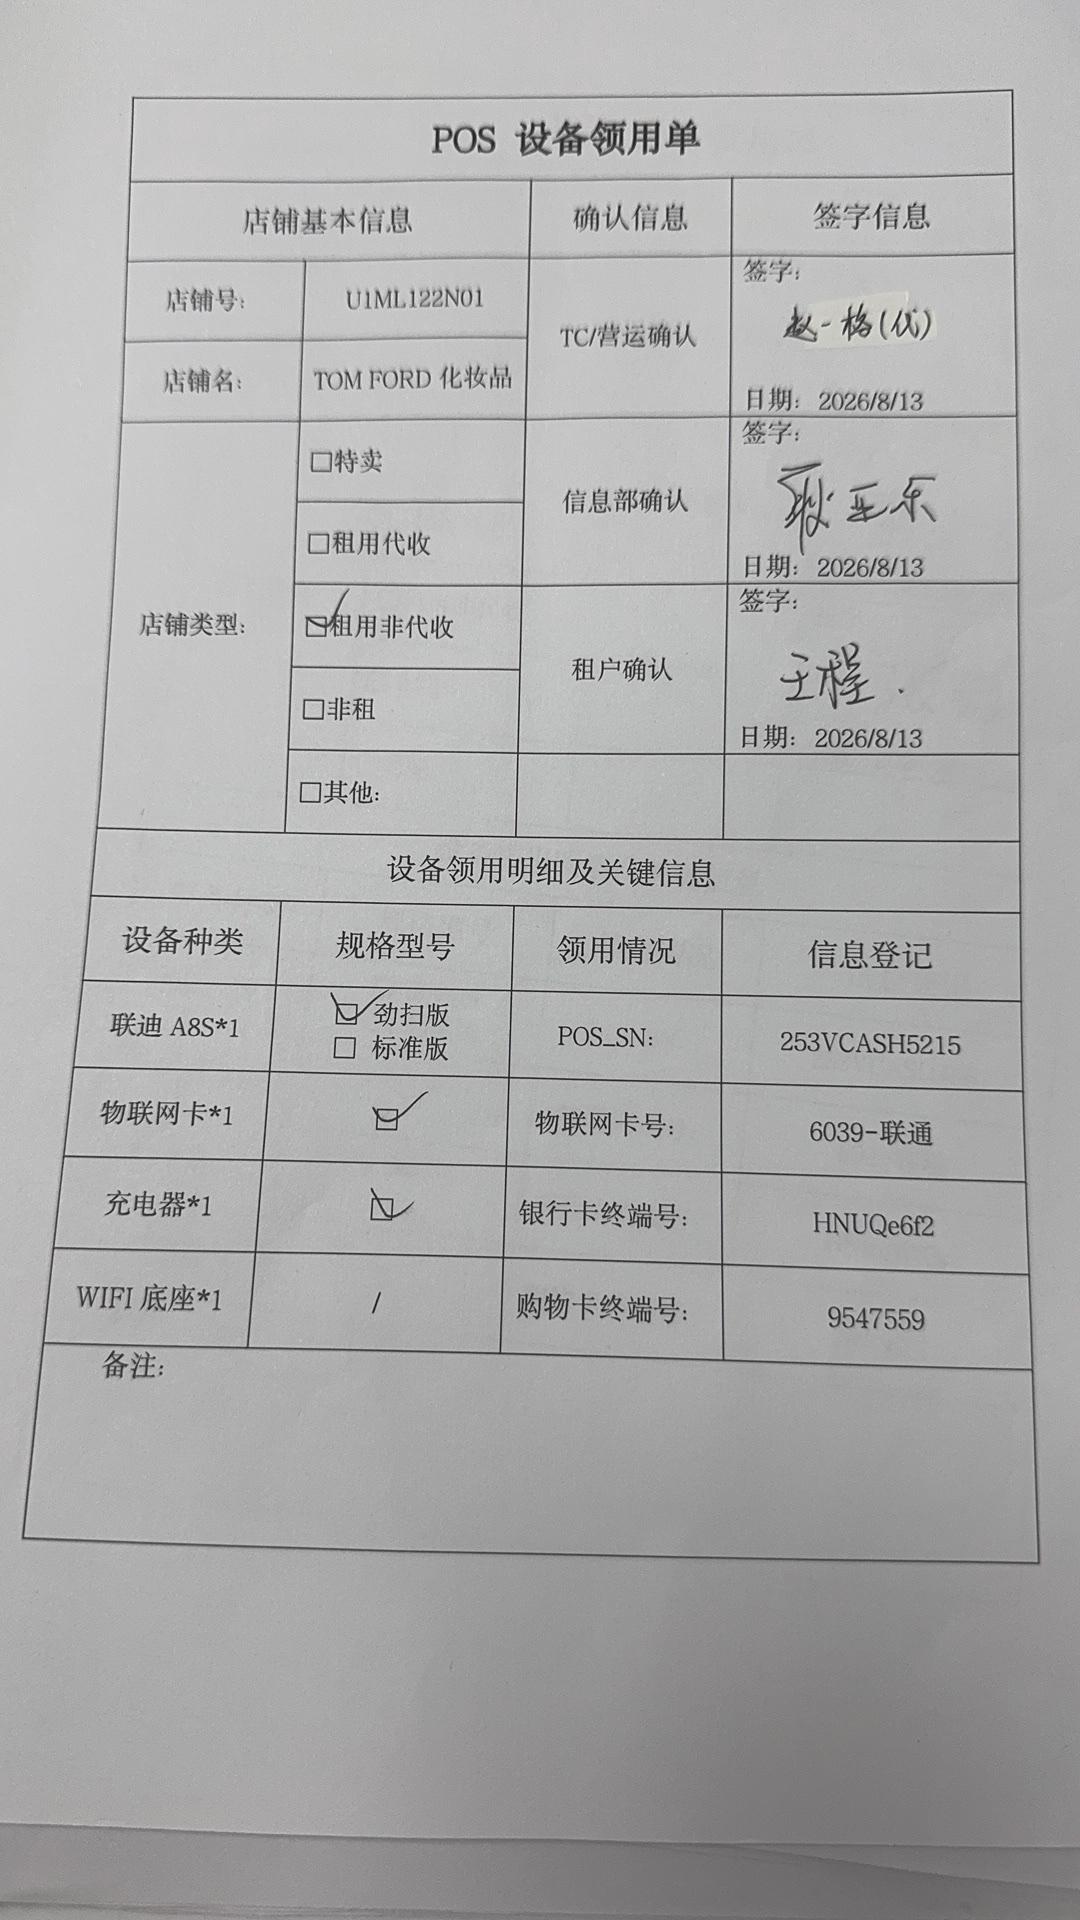 POS 设备领用单
店铺基本信息 确认信息 签字信息
店铺号: U1ML122N01
店铺名: TOM FORD 化妆品
TC/营运确认
签字:
赵一格(代)
日期: 2026/8/13
店铺类型:
□特卖
□租用代收
☑租用非代收
□非租
□其他:
信息部确认
签字:
耿亚乐
日期: 2026/8/13
租户确认
签字:
王程.
日期: 2026/8/13
设备领用明细及关键信息
设备种类 规格型号 领用情况 信息登记
联迪 A8S*1 ☑ 劲扫版 POS_SN: 253VCASH5215
□ 标准版
物联网卡*1 ☑ 物联网卡号: 6039-联通
充电器*1 ☑ 银行卡终端号: HNUQe6f2
WIFI 底座*1 / 购物卡终端号: 9547559
备注: